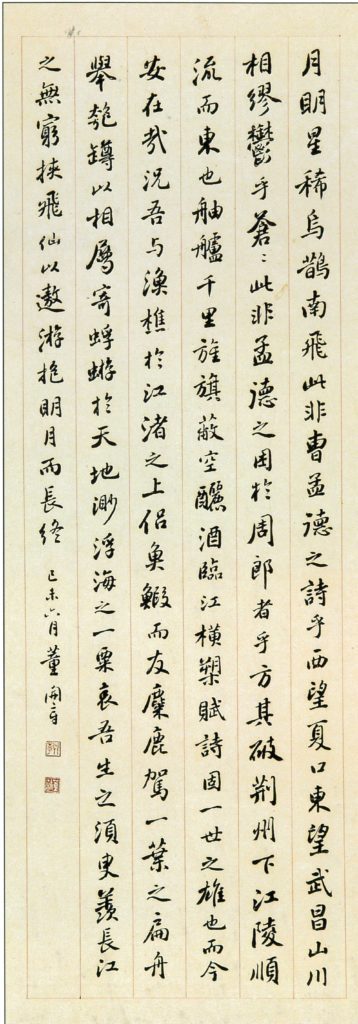 月明星稀烏鵲南飛此非曹孟德之詩乎西望夏口東望武昌山川
相繆鬱乎蒼〻此非孟德之困於周郎者乎方其破荊州下江陵順
流而東也舳艫千里旌旗蔽空釃酒臨江橫槊賦詩固一世之雄也而今
安在哉況吾与漁樵於江渚之上侶魚鰕而友麋鹿駕一葉之扁舟
舉匏罇以相屬寄蜉蝣於天地渺浮海之一粟哀吾生之須臾羨長江
之無窮挾飛仙以遨游抱明月而長終 己未六月董開章